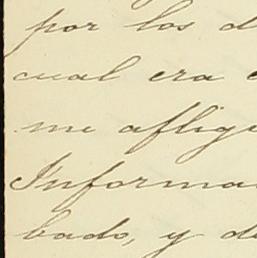 por los d
cual era
me aflig
Informa
bado, y d